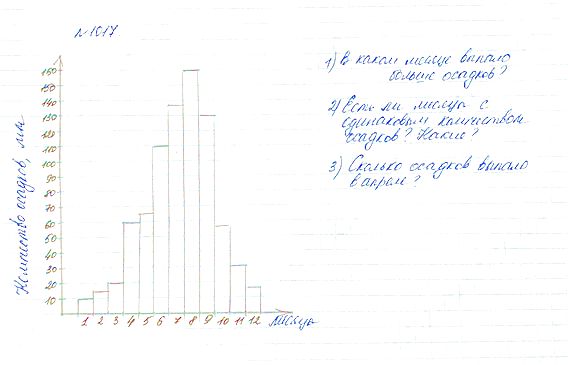 №1017
1) В каком месяце выпало
больше осадков?
2) Есть ли месяцы с
одинаковым количеством
осадков? Какие?
3) Сколько осадков выпало
в апреле?
Количество осадков, мм
160
150
140
130
120
110
100
90
80
70
60
50
40
30
20
10
1 2 3 4 5 6 7 8 9 10 11 12 месяцы